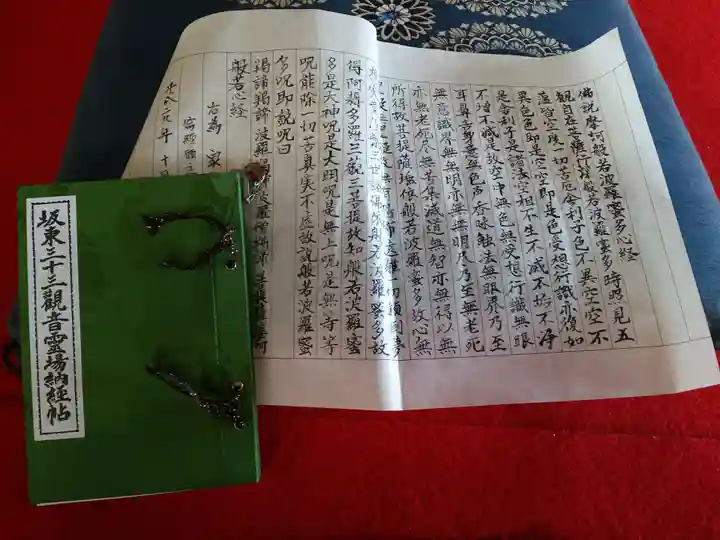 佛説摩訶般若波羅蜜多心経
観自在菩薩行深般若波羅蜜多時照見五
蘊皆空度一切苦厄舎利子色不異空空不
異色色即是空空即是色受想行識亦復如
是舎利子是諸法空相不生不滅不垢不浄
不増不減是故空中無色無受想行識無眼
耳鼻舌身意無色声香味触法無眼界乃至
無意識界無無明亦無無明尽乃至無老死
亦無老死尽無苦集滅道無智亦無得以無
所得故菩提薩埵依般若波羅蜜多故心無
無有恐怖遠離一切顛倒夢
三世諸佛依般若波羅蜜多故
得阿耨多羅三藐三菩提故知般若波羅蜜
多是大神呪是大明呪是無上呪是無等等
呪能除一切苦真実不虚故説般若波羅蜜
多呪即説呪曰
羯諦羯諦波羅羯諦波羅僧羯諦菩提薩婆訶
般若心経
右為 家
元年十月
坂東三十三觀音霊場納経帖